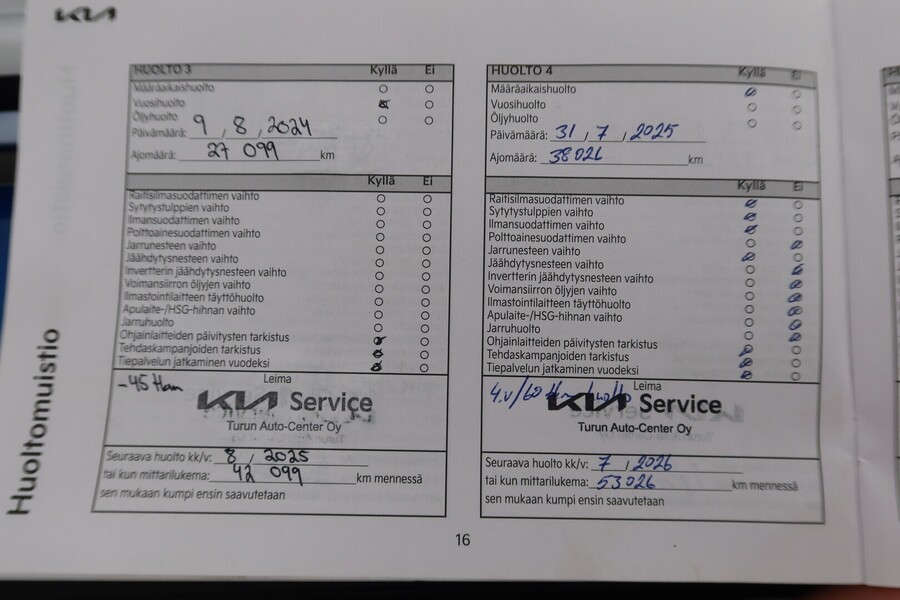 KIA
Huoltomuistio
HUOLTO 3 Kyllä Ei
Määräaikaishuolto
Vuosihuolto
Öljyhuolto
Päivämäärä: 9 , 8 , 2024
Ajomäärä: 27 099 km
Kyllä Ei
Raitisilmasuodattimen vaihto
Sytytystulppien vaihto
Ilmansuodattimen vaihto
Polttoainesuodattimen vaihto
Jarrunesteen vaihto
Jäähdytysnesteen vaihto
Invertterin jäähdytysnesteen vaihto
Voimansiirron öljyjen vaihto
Ilmastointilaitteen täyttöhuolto
Apulaite-/HSG-hihnan vaihto
Jarruhuolto
Ohjainlaitteiden päivitysten tarkistus
Tehdaskampanjoiden tarkistus
Tiepalvelun jatkaminen vuodeksi
Leima
-45 tkm
KIA Service
Turun Auto-Center Oy
Seuraava huolto kk/v: 8 , 2025
tai kun mittarilukema: 42 099 km mennessä
sen mukaan kumpi ensin saavutetaan
HUOLTO 4 Kyllä Ei
Määräaikaishuolto
Vuosihuolto
Öljyhuolto
Päivämäärä: 31 , 7 , 2025
Ajomäärä: 38026 km
Kyllä Ei
Raitisilmasuodattimen vaihto
Sytytystulppien vaihto
Ilmansuodattimen vaihto
Polttoainesuodattimen vaihto
Jarrunesteen vaihto
Jäähdytysnesteen vaihto
Invertterin jäähdytysnesteen vaihto
Voimansiirron öljyjen vaihto
Ilmastointilaitteen täyttöhuolto
Apulaite-/HSG-hihnan vaihto
Jarruhuolto
Ohjainlaitteiden päivitysten tarkistus
Tehdaskampanjoiden tarkistus
Tiepalvelun jatkaminen vuodeksi
Leima
4.v/60 tkm huolto
KIA Service
Turun Auto-Center Oy
Seuraava huolto kk/v: 7 , 2026
tai kun mittarilukema: 53026 km mennessä
sen mukaan kumpi ensin saavutetaan
16